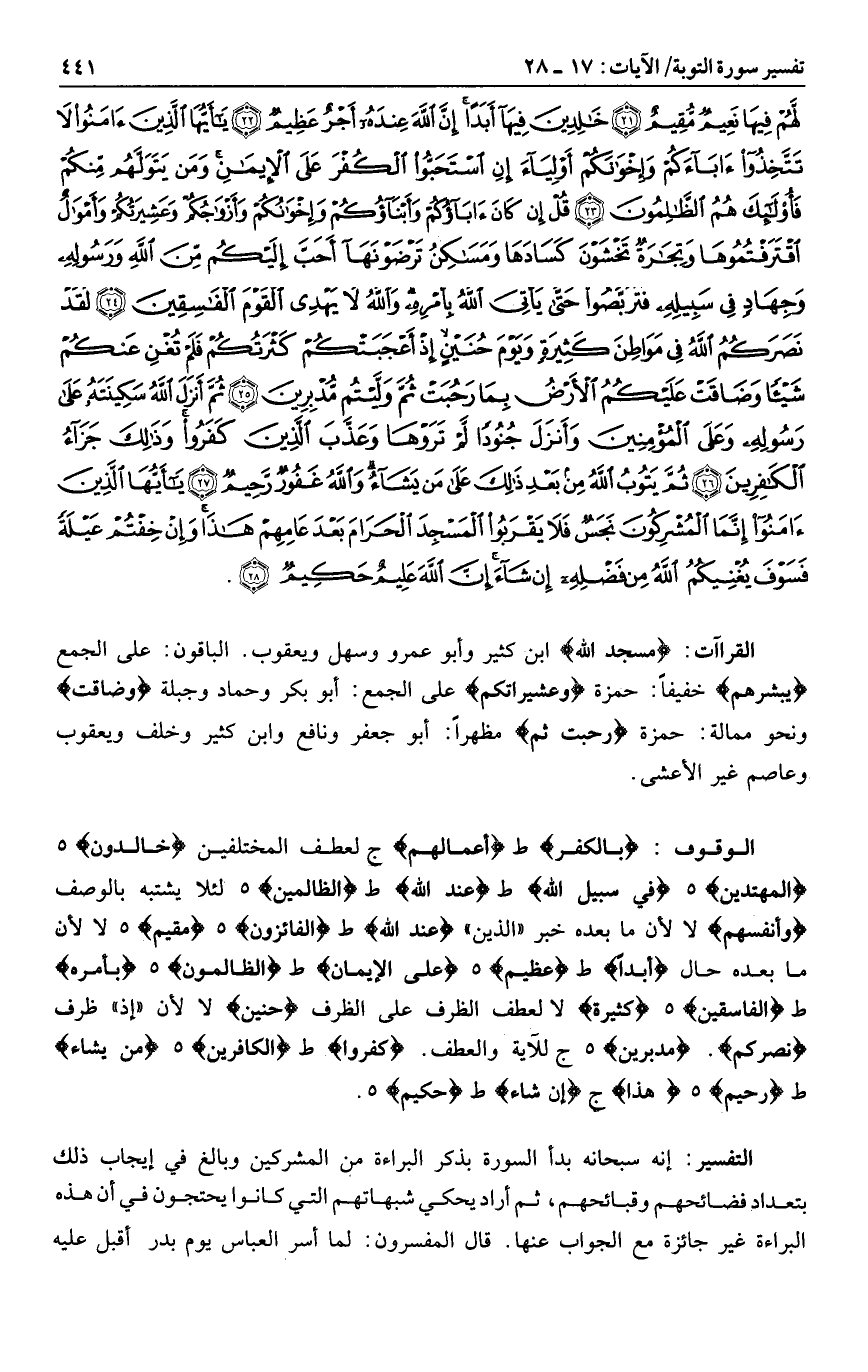 تفسير سورة التوبة/ الآيات: ١٧ ـ ٢٨ ٤٤١
لَّهُمْ فِيهَا نَعِيمٌ مُّقِيمٌ ﴿٢١﴾ خَٰلِدِينَ فِيهَآ أَبَدًا ۚ إِنَّ ٱللَّهَ عِندَهُۥٓ أَجْرٌ عَظِيمٌ ﴿٢٢﴾ يَٰٓأَيُّهَا ٱلَّذِينَ ءَامَنُوا۟ لَا
تَتَّخِذُوٓا۟ ءَابَآءَكُمْ وَإِخْوَٰنَكُمْ أَوْلِيَآءَ إِنِ ٱسْتَحَبُّوا۟ ٱلْكُفْرَ عَلَى ٱلْإِيمَٰنِ ۚ وَمَن يَتَوَلَّهُم مِّنكُمْ
فَأُو۟لَٰٓئِكَ هُمُ ٱلظَّٰلِمُونَ ﴿٢٣﴾ قُلْ إِن كَانَ ءَابَآؤُكُمْ وَأَبْنَآؤُكُمْ وَإِخْوَٰنُكُمْ وَأَزْوَٰجُكُمْ وَعَشِيرَتُكُمْ وَأَمْوَٰلٌ
ٱقْتَرَفْتُمُوهَا وَتِجَٰرَةٌ تَخْشَوْنَ كَسَادَهَا وَمَسَٰكِنُ تَرْضَوْنَهَآ أَحَبَّ إِلَيْكُم مِّنَ ٱللَّهِ وَرَسُولِهِۦ
وَجِهَادٍ فِى سَبِيلِهِۦ فَتَرَبَّصُوا۟ حَتَّىٰ يَأْتِىَ ٱللَّهُ بِأَمْرِهِۦ ۗ وَٱللَّهُ لَا يَهْدِى ٱلْقَوْمَ ٱلْفَٰسِقِينَ ﴿٢٤﴾ لَقَدْ
نَصَرَكُمُ ٱللَّهُ فِى مَوَاطِنَ كَثِيرَةٍ وَيَوْمَ حُنَيْنٍ ۙ إِذْ أَعْجَبَتْكُمْ كَثْرَتُكُمْ فَلَمْ تُغْنِ عَنكُمْ
شَيْـًٔا وَضَاقَتْ عَلَيْكُمُ ٱلْأَرْضُ بِمَا رَحُبَتْ ثُمَّ وَلَّيْتُم مُّدْبِرِينَ ﴿٢٥﴾ ثُمَّ أَنزَلَ ٱللَّهُ سَكِينَتَهُۥ عَلَىٰ
رَسُولِهِۦ وَعَلَى ٱلْمُؤْمِنِينَ وَأَنزَلَ جُنُودًا لَّمْ تَرَوْهَا وَعَذَّبَ ٱلَّذِينَ كَفَرُوا۟ ۚ وَذَٰلِكَ جَزَآءُ
ٱلْكَٰفِرِينَ ﴿٢٦﴾ ثُمَّ يَتُوبُ ٱللَّهُ مِنۢ بَعْدِ ذَٰلِكَ عَلَىٰ مَن يَشَآءُ ۗ وَٱللَّهُ غَفُورٌ رَّحِيمٌ ﴿٢٧﴾ يَٰٓأَيُّهَا ٱلَّذِينَ
ءَامَنُوٓا۟ إِنَّمَا ٱلْمُشْرِكُونَ نَجَسٌ فَلَا يَقْرَبُوا۟ ٱلْمَسْجِدَ ٱلْحَرَامَ بَعْدَ عَامِهِمْ هَٰذَا ۚ وَإِنْ خِفْتُمْ عَيْلَةً
فَسَوْفَ يُغْنِيكُمُ ٱللَّهُ مِن فَضْلِهِۦٓ إِن شَآءَ ۚ إِنَّ ٱللَّهَ عَلِيمٌ حَكِيمٌ ﴿٢٨﴾ .
القراآت: ﴿مسجد الله﴾ ابن كثير وأبو عمرو وسهل ويعقوب. الباقون: على الجمع
﴿يبشرهم﴾ خفيفاً: حمزة ﴿وعشيراتكم﴾ على الجمع: أبو بكر وحماد وجبلة ﴿وضاقت﴾
ونحو ممالة: حمزة ﴿رحبت ثم﴾ مظهراً: أبو جعفر ونافع وابن كثير وخلف ويعقوب
وعاصم غير الأعشى.
الوقوف: ﴿بالكفر﴾ ط ﴿أعمالهم﴾ ج لعطف المختلفين ﴿خالدون﴾ ٥
﴿المهتدين﴾ ٥ ﴿في سبيل الله﴾ ط ﴿عند الله﴾ ط ﴿الظالمين﴾ ٥ لئلا يشتبه بالوصف
﴿وأنفسهم﴾ لا لأن ما بعده خبر «الذين» ﴿عند الله﴾ ط ﴿الفائزون﴾ ٥ ﴿مقيم﴾ ٥ لا لأن
ما بعده حال ﴿أبداً﴾ ط ﴿عظيم﴾ ٥ ﴿على الإيمان﴾ ط ﴿الظالمون﴾ ٥ ﴿بأمره﴾
ط ﴿الفاسقين﴾ ٥ ﴿كثيرة﴾ لا لعطف الظرف على الظرف ﴿حنين﴾ لا لأن «إذ» ظرف
﴿نصركم﴾. ﴿مدبرين﴾ ٥ ج للآية والعطف. ﴿كفروا﴾ ط ﴿الكافرين﴾ ٥ ﴿من يشاء﴾
ط ﴿رحيم﴾ ٥ ﴿ هذا﴾ ج ﴿إن شاء﴾ ط ﴿حكيم﴾ ٥.
التفسير: إنه سبحانه بدأ السورة بذكر البراءة من المشركين وبالغ في إيجاب ذلك
بتعداد فضائحهم وقبائحهم، ثم أراد يحكي شبهاتهم التي كانوا يحتجون في أن هذه
البراءة غير جائزة مع الجواب عنها. قال المفسرون: لما أسر العباس يوم بدر أقبل عليه